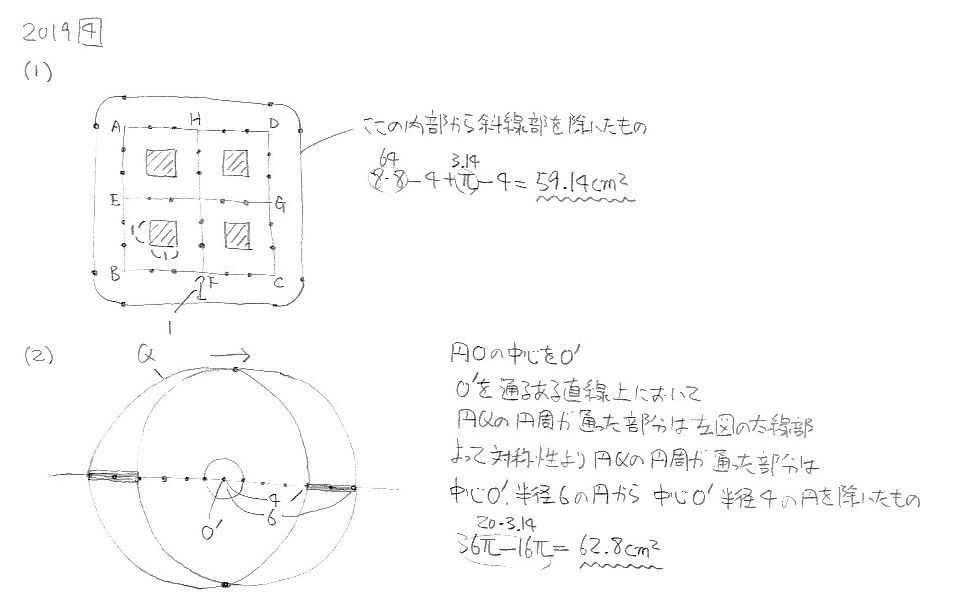 2019 4
(1)
A H D
E G
B F C
1
1
1
ここの内部から斜線部を除いたもの
64 3.14
8・8-4+π-4=59.14cm²
(2)
Q →
4
6
O'
円Oの中心をO'
O'を通るある直線上において
円Qの円周が通った部分は左図の太線部
よって対称性より円Qの円周が通った部分は
中心O'、半径6の円から中心O'半径4の円を除いたもの
20・3.14
36π-16π=62.8cm²